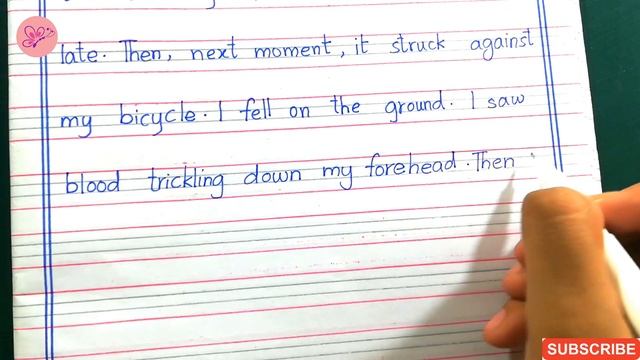 late. Then, next moment, it struck against
my bicycle. I fell on the ground. I saw
blood trickling down my forehead. Then
SUBSCRIBE